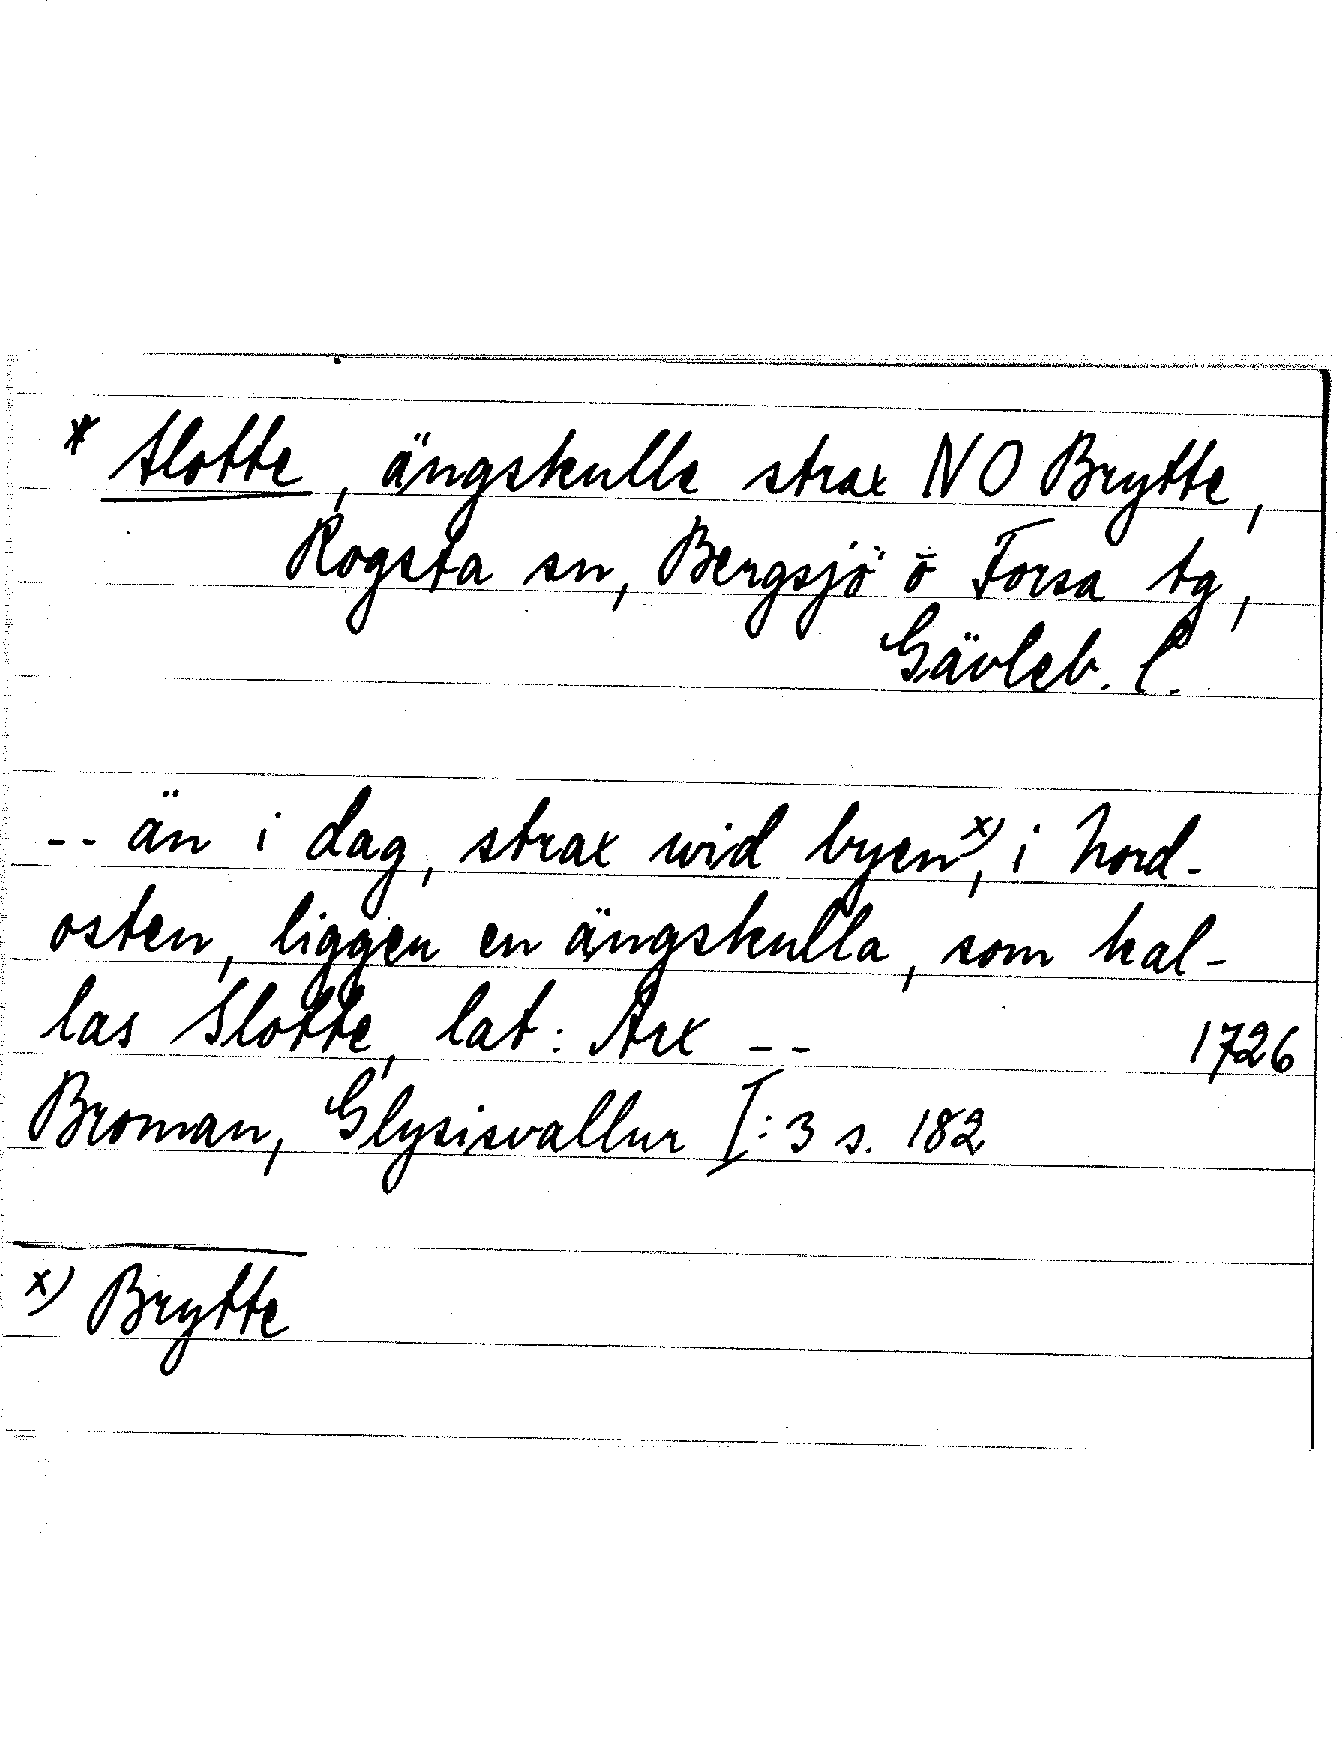 * Slotte, ängskulle strax NO Brytte,
Rogsta sn, Bergsjö o Forsa tg,
Gävleb. l.
-- än i dag, strax wid byen x), i Nord-
osten, ligger en ängskulla, som kal-
las Slotte, lat: Arx -- 1726
Broman, Glysisvallur I:3 s. 182
x) Brytte